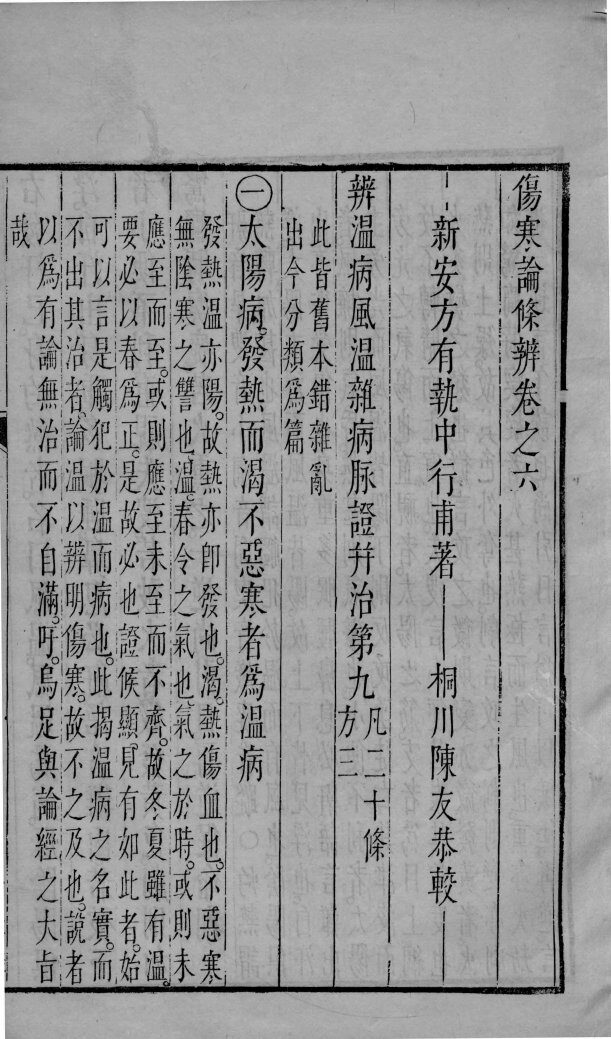 傷寒論條辨卷之六
新安方有執中行甫著 桐川陳友恭較
辨温病風温雜病脉證并治第九凡二十條方三
此皆舊本錯雜亂
出今分類爲篇
㊀太陽病。發熱而渴不惡寒者爲温病
發熱温亦陽。故熱亦卽發也。渴。熱傷血也。不惡寒
無陰寒之讐也。温。春令之氣也。氣之於時。或則未
應至而至。或則應至未至而不齊。故冬夏雖有温。
要必以春爲正。是故必也證候顯。見有如此者。始
可以言是觸犯於温而病也。此揭温病之名實。而
不出其治者。論温以辨明傷寒。故不之及也。説者
以爲有論無治而不自滿。吁。烏足與論經之大旨
哉